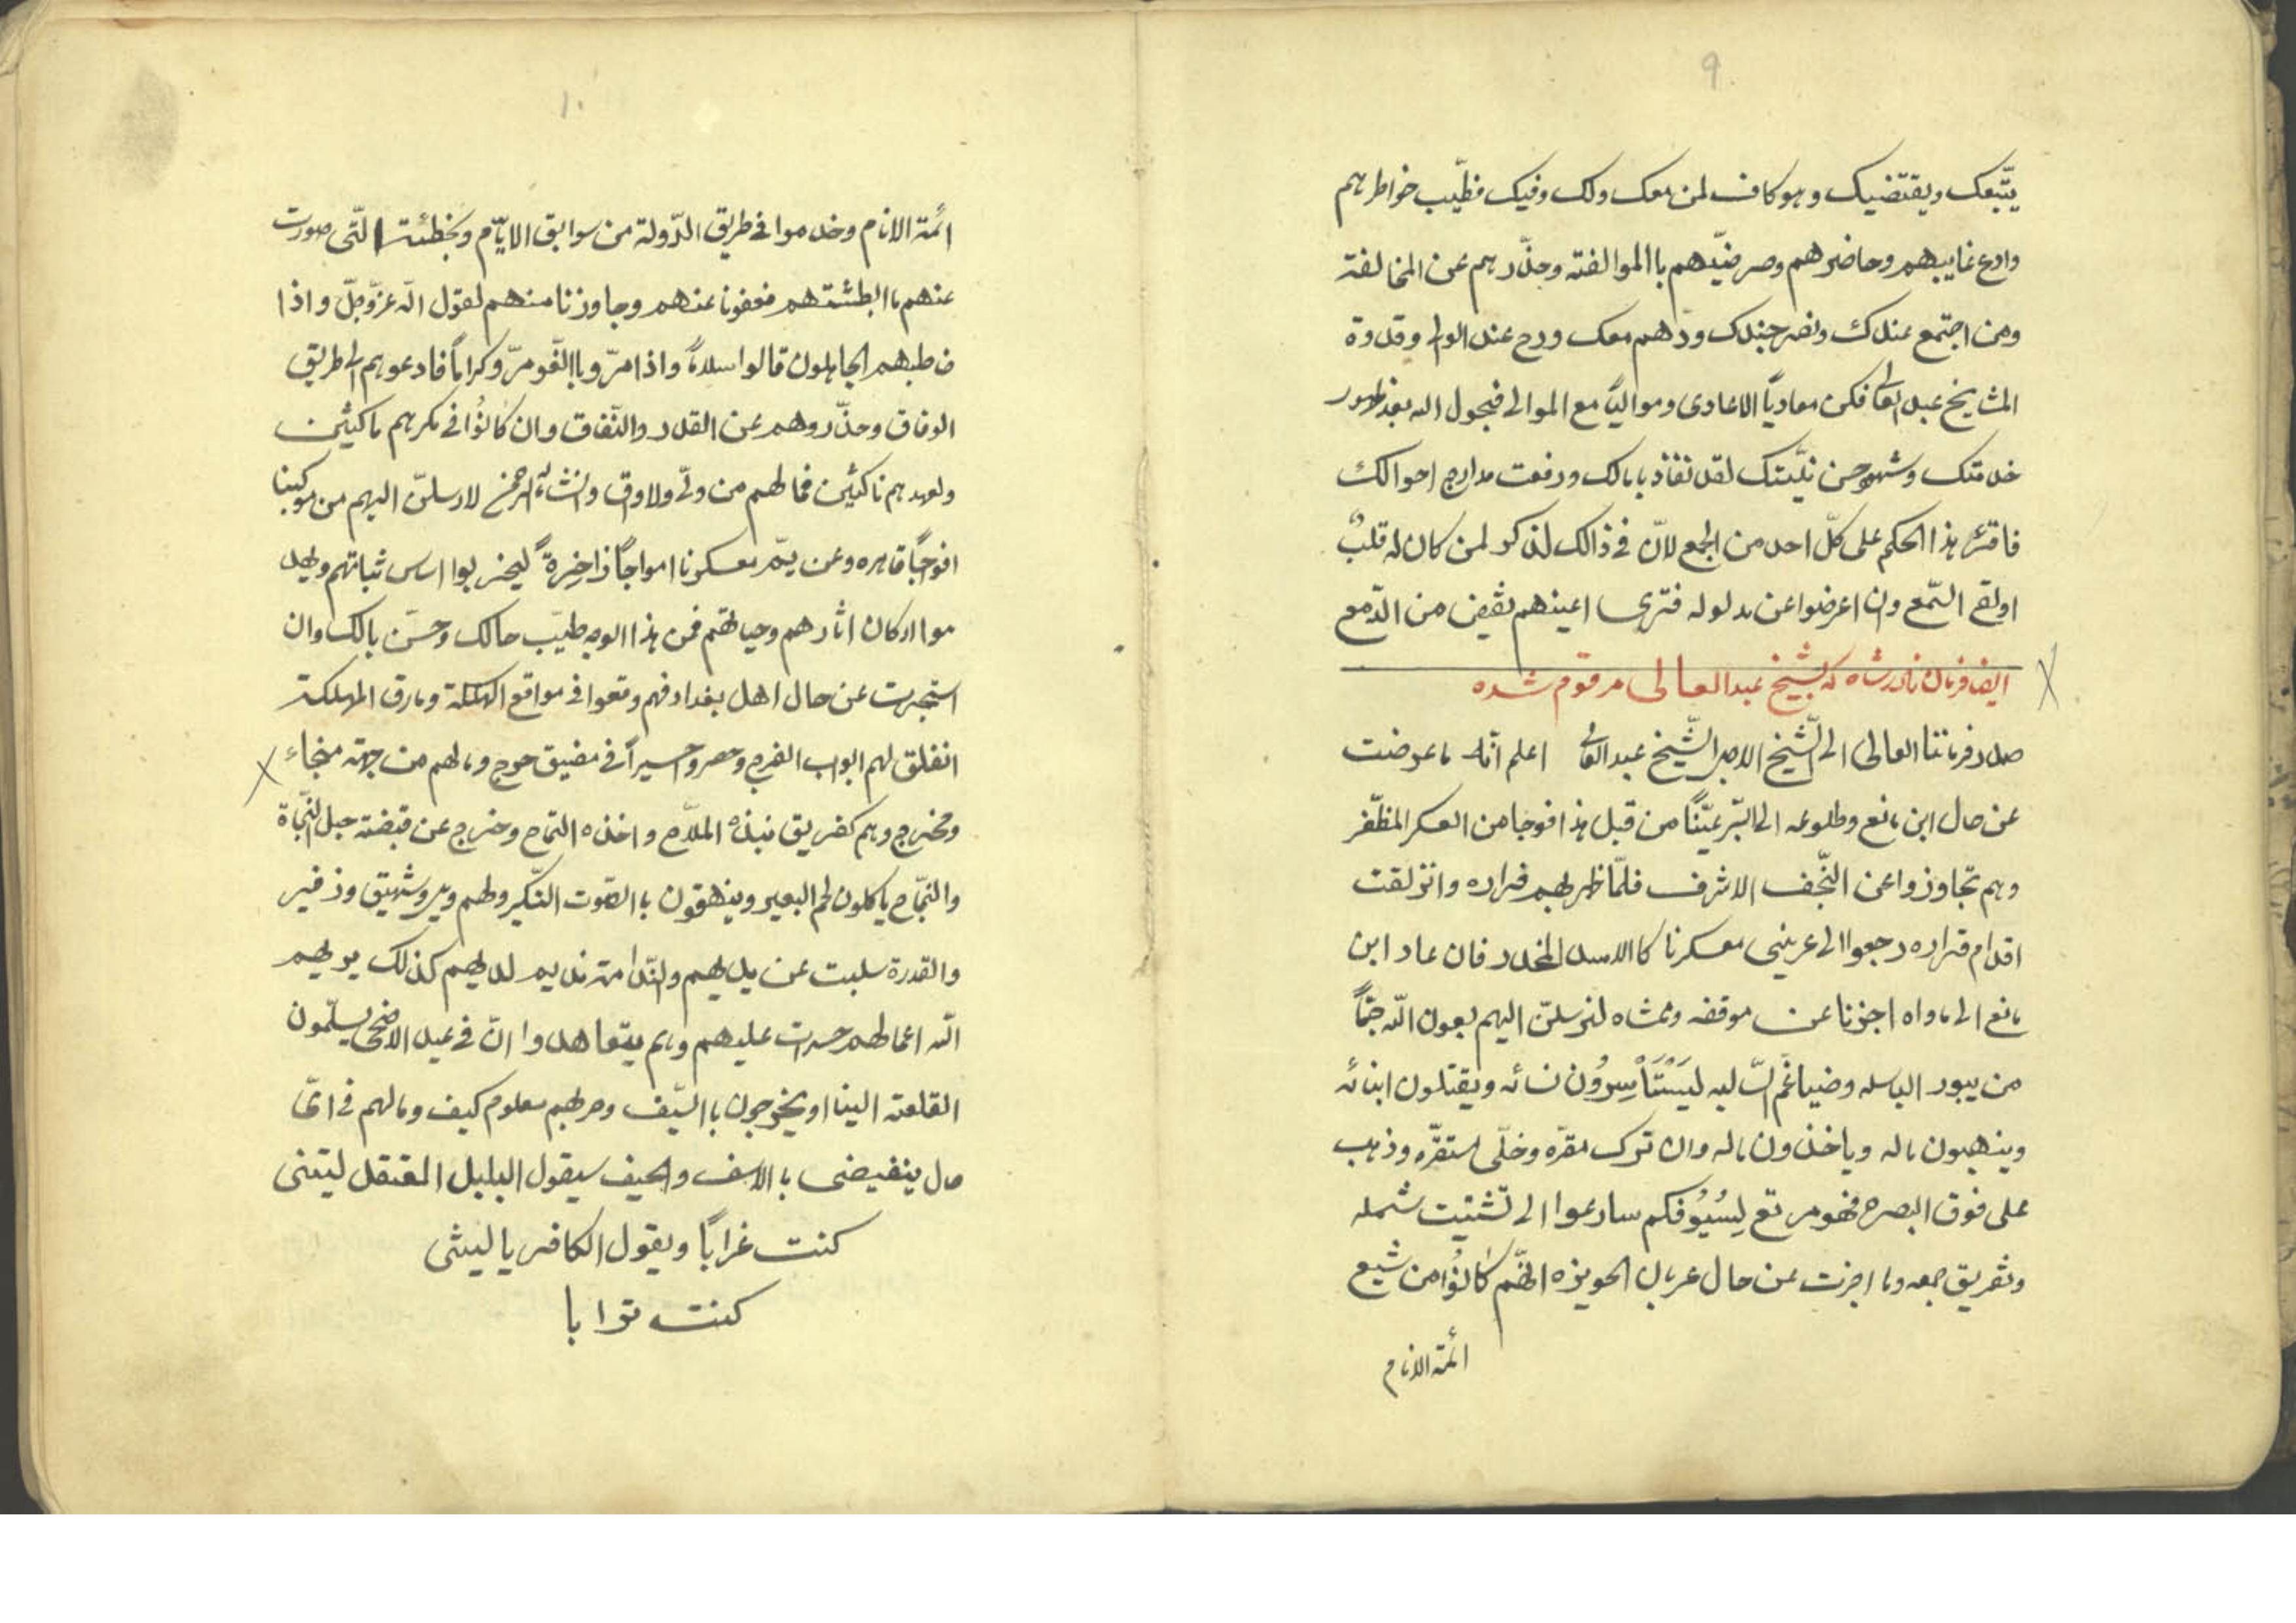 ۹
يتّبعك ويقتضيك وهو كاف لمن معك ولك وفيك فطيّب خواطرهم
وادع غايبهم وحاضرهم وحرضيّهم باالموالفته وحذّرهم عن المخالفة
ومن اجتمع عندك ونصر جندك ودّهم معك ودح عند الولد وقدوة
المشايخ عبد العالى فكن معادياً الاعادى وموالياً مع الموالى فبحول الله بعد ظهور
خدمتك وشهو حسن نيّتك لقد نفاذ بابالك ورفعت مدارج احوالك
فاقرئ هذا الحكم على كلّ احد من الجمع لانّ فى ذالك لذكر لمن كان له قلبٌ
اولقى السّمع وان اعرضوا عن مدلوله فترى اعينهم تفيض من الدّمع
ايضا فرمان نادرشاه كه بشيخ عبد العالى مرقوم شده
صدر فرماننا العالى الى الشّيخ الامير الشّيخ عبد العالى اعلم انّك ما عرضت
عن حال ابن مانع وطلوعه الى البّر عيّنّا من قبل هذا افوجا من العسكر المظفّر
وهم تجاوزوا عن النّجف الاشرف فلمّا ظهر لهم فراره وانزلقت
اقدام قراره رجعوا الى عرينى معسكرنا كاالاسد المخدر فان عاد ابن
مانع الى ماواه اجزنا عن موقفه وممشاه لنرسلنّ اليهم بعون اللّه جمّاً
من يبور الباسله وضياغم السّ ليه ليَسْتَأْسِرُون نسائه ويقتلون ابنائه
وينهبون ماله وياخذون ماله وان ترك مقرّه وخلّى مستقرّه وذهب
على فوق البصره فهو مرتع لِسُيُوفكم سارعوا الى تشتيت شمله
وتفريق جمعه وما اخبرت عن حال عربان الحويزه انهّم كانُوا من شيع
ائمة الانام
۱۰
ائمة الانام وخدموا فى طريق الدّولة من سوابق الايّام وبخطئة الّتى صدرت
عنهم باابطئتهم فعفونا عنهم وجاوزنا منهم لقول اللّه عزّ وجلّ واذا
خاطبهم الجاهلون قالوا سلاماً واذا مرّوا باالّلغو مرّوا كراماً فادعوهم الى طريق
الوفاق وحذّروهم عن القدر والنّفاق وان كانُوا فى مكرهم ماكثين
ولعهدهم ناكثين فمالهم من ولّى ولاواق وانشاء الرحمن لارسلنّ اليهم من موكبنا
افوجاً قاهره وعن يمّ معسكرنا امواجاً ذاخِرةً ليخربوا اساس ثباتهم ويهد
موا اركان اثارهم وحياتهم فمن هذا الوجه طيّب حالك وحسّن بالك وان
استخبرت عن حال اهل بغداد فهم وقعوا فى مواقع الهلكة ومارق المهلكة
انغلق لهم ابواب الفرج وحصروا حسيراً فى مضيق حرج ومالهم من جهة منجاء
ومخرج وهم كغريق نبذه الملاّح واخذه التمّاح وخرج عن قبضته حبل النّجاة
والنّجّاح ياكلون لحم البعير وينهقون باالصّوت النّكير ولهم وير وشهيق وزفير
والقدرة سلبت عن يديهم والنّدامة نديم لديهم كذلك يريهم
اللّه اعمالهم حسرات عليهم وهم يتعاهدوا انّ فى عيد الاضحى يسلّمون
القلعة الينا او يخرجون باالسّيف وحربهم معلوم كيف ومالهم فى اىّ
حال ينفيضى باالاسف والحيف سيقول البلبل المعتقل ليتنى
كنت غراباً ويقول الكافر يا ليتنى
كنت ترابا